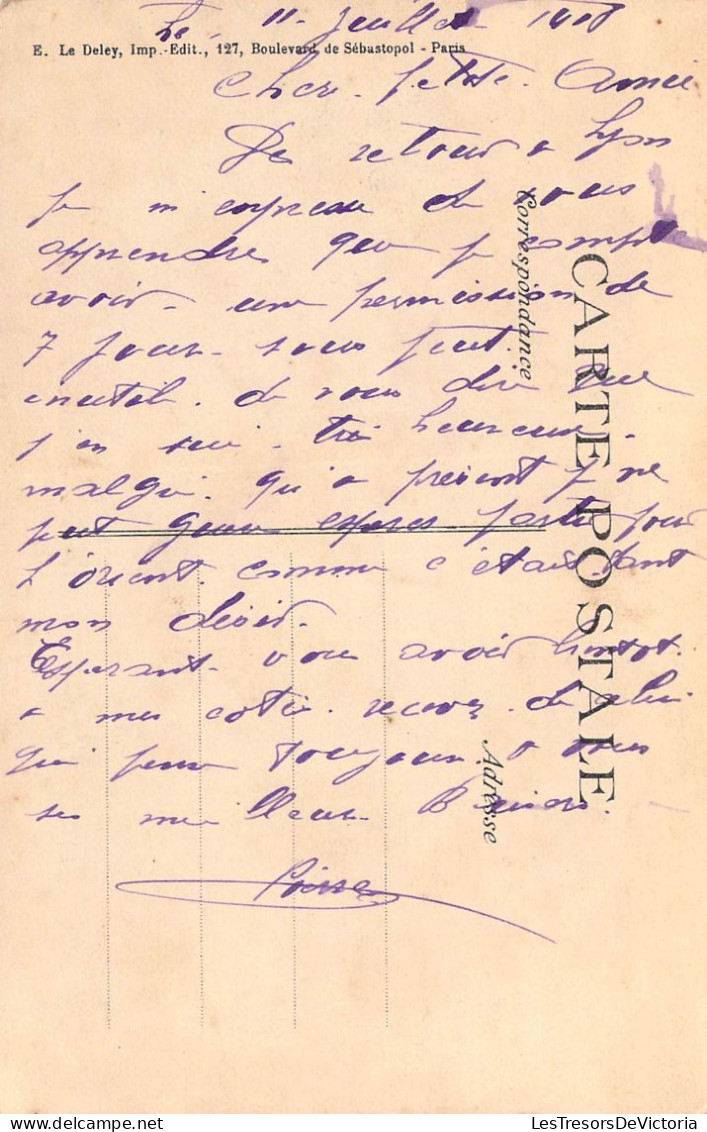 Le, 11 Juillet
E. Le Deley, Imp.-Edit., 127, Boulevard de Sébastopol - Paris
Cher petite Amie
De retour a Lyon
Je m'enpresse de vous
apprendre que je compte
avoir une permission de
7 jours. vous
inutile de vous dire que
j'en sui tré heureux
malgré qu'a présent je ne
peut partir pour
L'orient comme c'etait tant
mon désir.
Esperant vous avoir bientot
a mes coté recever de celui
qui pense toujours a vous
ses meilleur Baisers.
Pierre
Correspondance
CARTE POSTALE
Adresse
LesTresorsDeVictoria